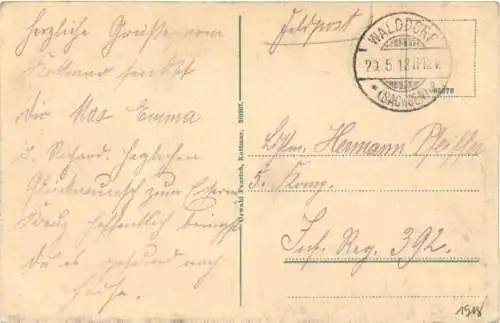 Herzliche Grüße vom
Kottmar sendet
dir Max Emma
u. Richard. Herzlichen
Glückwunsch zum Eisernen
Kreuz hoffentlich bringst
du es gesund nach
Hause.
Oswald Kottmar,
Feldpost
WALDDORF
20.5.18
(SACHSEN)
Hermann Pfeiffer
5. Komp.
Inf. Reg. 392.
1918